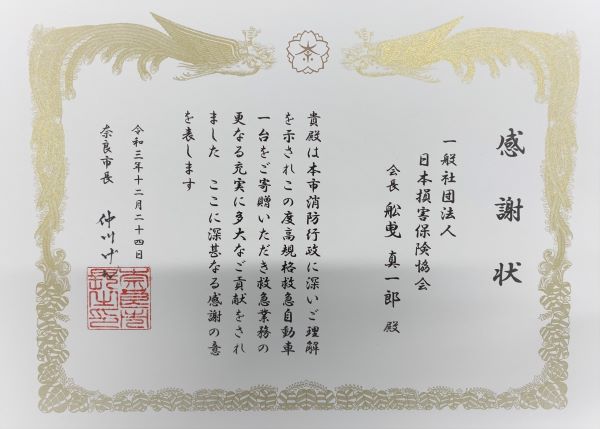 感謝状
一般社団法人
日本損害保険協会
会長 舩曵 真一郎 殿
貴殿は本市消防行政に深いご理解
を示されこの度高規格救急自動車
一台をご寄贈いただき救急業務の
更なる充実に多大なご貢献をされ
ました ここに深甚なる感謝の意
を表します
令和三年十二月二十四日
奈良市長 仲川げん